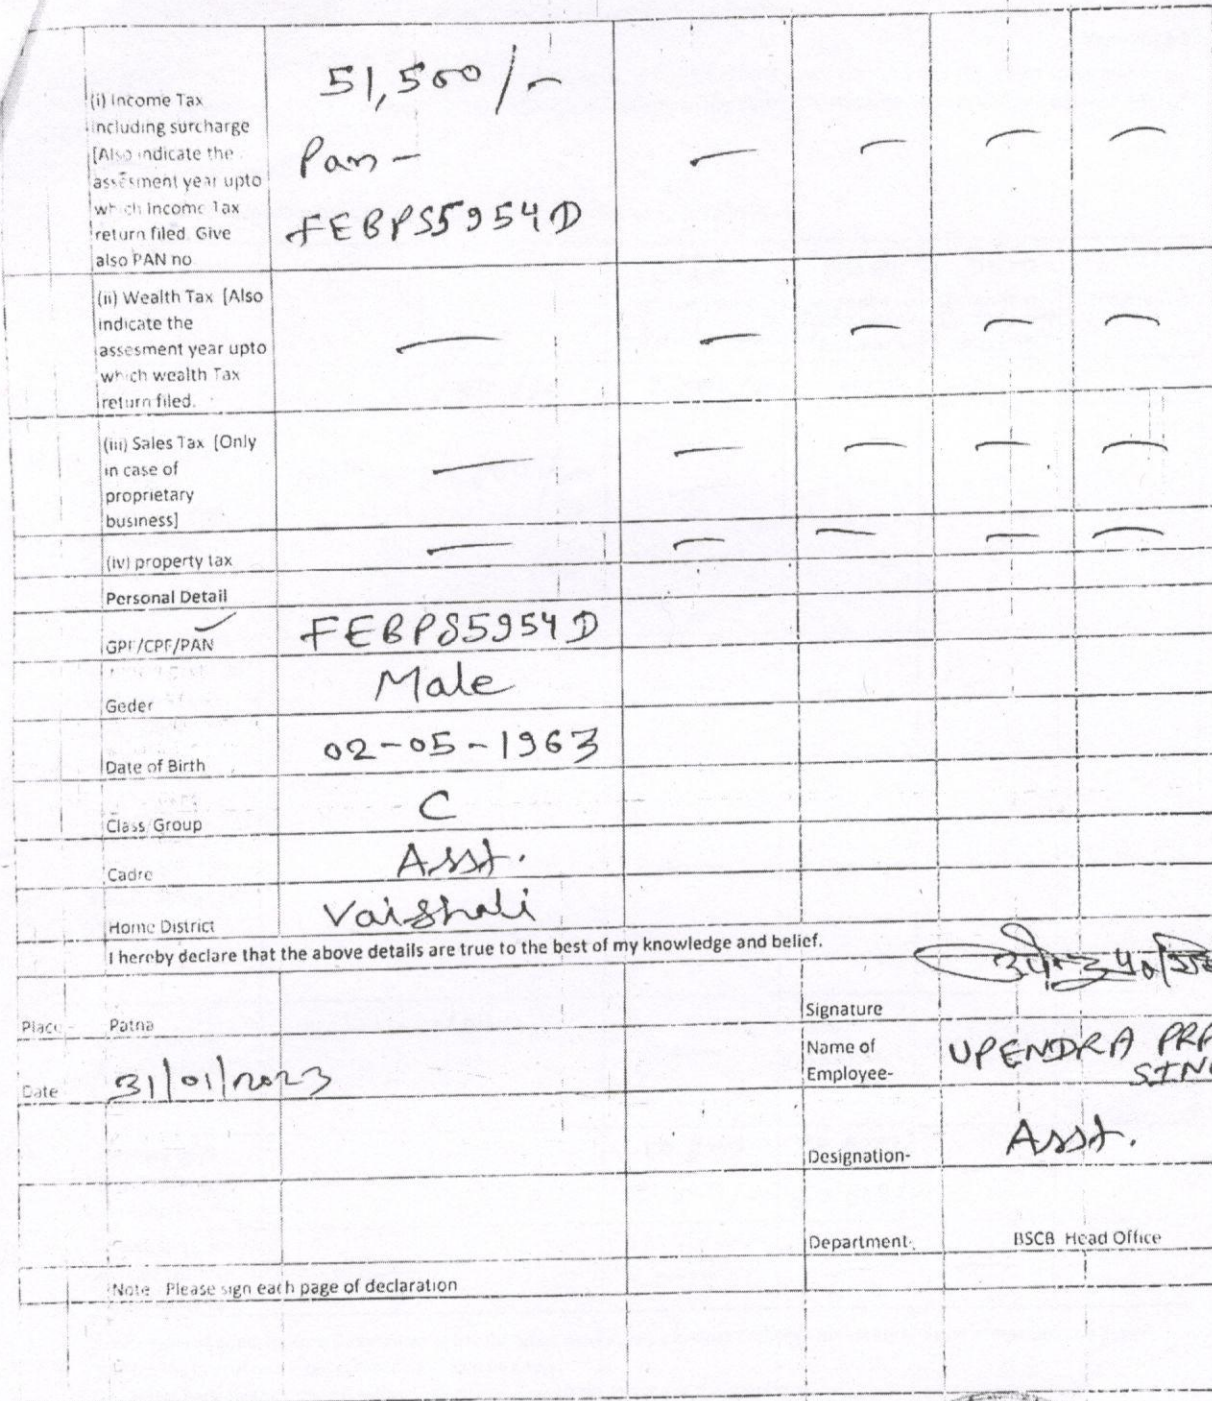 (i) Income Tax
including surcharge
[Also indicate the
assesment year upto
which Income Tax
return filed. Give
also PAN no
51,500/-
Pan-
FEBPS5954D
— — — —
(ii) Wealth Tax [Also
indicate the
assesment year upto
which wealth Tax
return filed.
— — — — —
(iii) Sales Tax [Only
in case of
proprietary
business]
— — — — —
(iv) property tax — — — — —
Personal Detail
GPF/CPF/PAN FEBPS5954D
Geder Male
Date of Birth 02-05-1963
Class/Group C
Cadre Asst.
Home District Vaishali
I hereby declare that the above details are true to the best of my knowledge and belief.
Signature
Place - Patna
Name of
Employee-
UPENDRA PRA
SIN
Date 31/01/2023
Designation- Asst.
Department- BSCB Head Office
Note Please sign each page of declaration